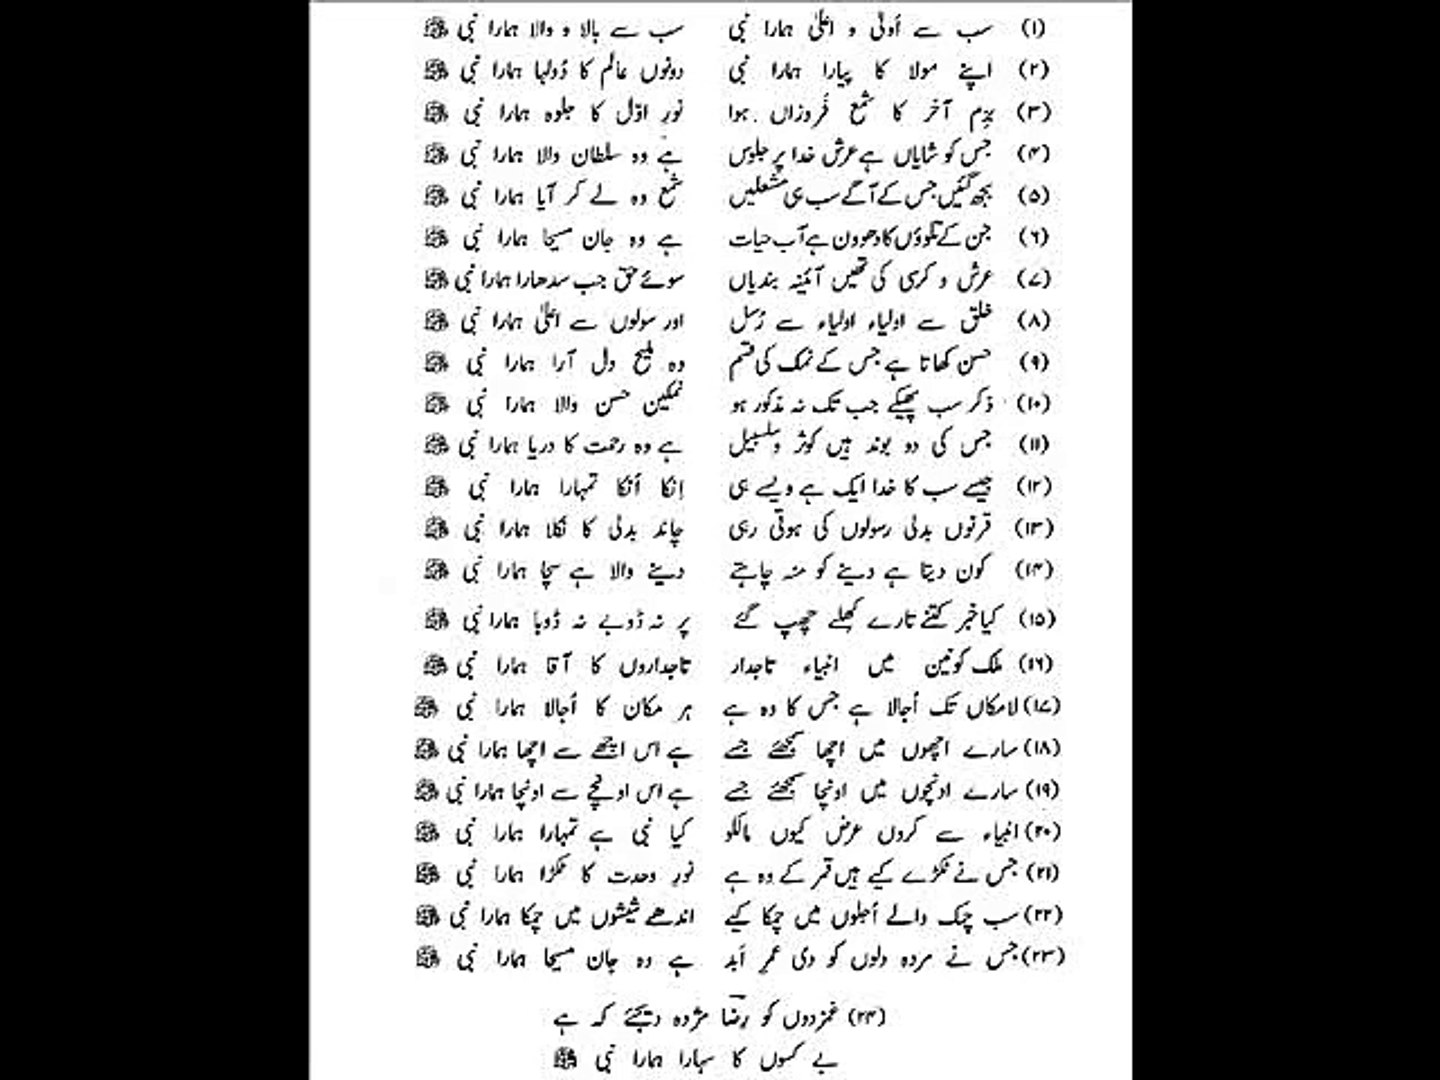 (۱) سب سے اَولیٰ و اعلیٰ ہمارا نبی سب سے بالا و والا ہمارا نبی ﷺ
(۲) اپنے مولا کا پیارا ہمارا نبی دونوں عالم کا دُولہا ہمارا نبی ﷺ
(۳) بزم آخر کا شمع فَروزاں ہوا نورِ اوّل کا جلوہ ہمارا نبی ﷺ
(۴) جس کو شایاں ہے عرش خدا پر جلوس ہے وہ سلطان والا ہمارا نبی ﷺ
(۵) بجھ گئیں جس کے آگے سب ہی مشعلیں شمع وہ لے کر آیا ہمارا نبی ﷺ
(۶) جن کے تلوؤں کا دھوون ہے آب حیات ہے وہ جان مسیحا ہمارا نبی ﷺ
(۷) عرش و کرسی کی تھیں آئینہ بندیاں سوئے حق جب سدھارا ہمارا نبی ﷺ
(۸) خلق سے اولیاء اولیاء سے رُسل اور سولوں سے اعلیٰ ہمارا نبی ﷺ
(۹) حسن کھاتا ہے جس کے نمک کی قسم وہ ملیح دل آرا ہمارا نبی ﷺ
(۱۰) ذکر سب پھیکے جب تک نہ مذکور ہو نمکین حسن والا ہمارا نبی ﷺ
(۱۱) جس کی دو بوند ہیں کوثر و سلسبیل ہے وہ رحمت کا دریا ہمارا نبی ﷺ
(۱۲) جیسے سب کا خدا ایک ہے ویسے ہی اِنکا اُنکا تمہارا ہمارا نبی ﷺ
(۱۳) قرنوں بدلی رسولوں کی ہوتی رہی چاند بدلی کا نکلا ہمارا نبی ﷺ
(۱۴) کون دیتا ہے دینے کو منہ چاہئے دینے والا ہے سچا ہمارا نبی ﷺ
(۱۵) کیا خبر کتنے تارے کھلے چھپ گئے پر نہ ڈوبے نہ ڈوبا ہمارا نبی ﷺ
(۱۶) ملک کونین میں انبیاء تاجدار تاجداروں کا آقا ہمارا نبی ﷺ
(۱۷) لامکاں تک اُجالا ہے جس کا وہ ہے ہر مکان کا اُجالا ہمارا نبی ﷺ
(۱۸) سارے اچھوں میں اچھا سمجھئے جسے ہے اس اچھے سے اچھا ہمارا نبی ﷺ
(۱۹) سارے اونچوں میں اونچا سمجھئے جسے ہے اس اونچے سے اونچا ہمارا نبی ﷺ
(۲۰) انبیاء سے کروں عرض کیوں مالکو کیا نبی ہے تمہارا ہمارا نبی ﷺ
(۲۱) جس نے ٹکڑے کیے ہیں قمر کے وہ ہے نورِ وحدت کا ٹکڑا ہمارا نبی ﷺ
(۲۲) سب چمک والے اُجلوں میں چمکا کیے اندھے شیشوں میں چمکا ہمارا نبی ﷺ
(۲۳) جس نے مردہ دلوں کو دی عمرِ اَبد ہے وہ جان مسیحا ہمارا نبی ﷺ
(۲۴) غمزدوں کو رضؔا مژدہ دیجئے کہ ہے
بے کسوں کا سہارا ہمارا نبی ﷺ